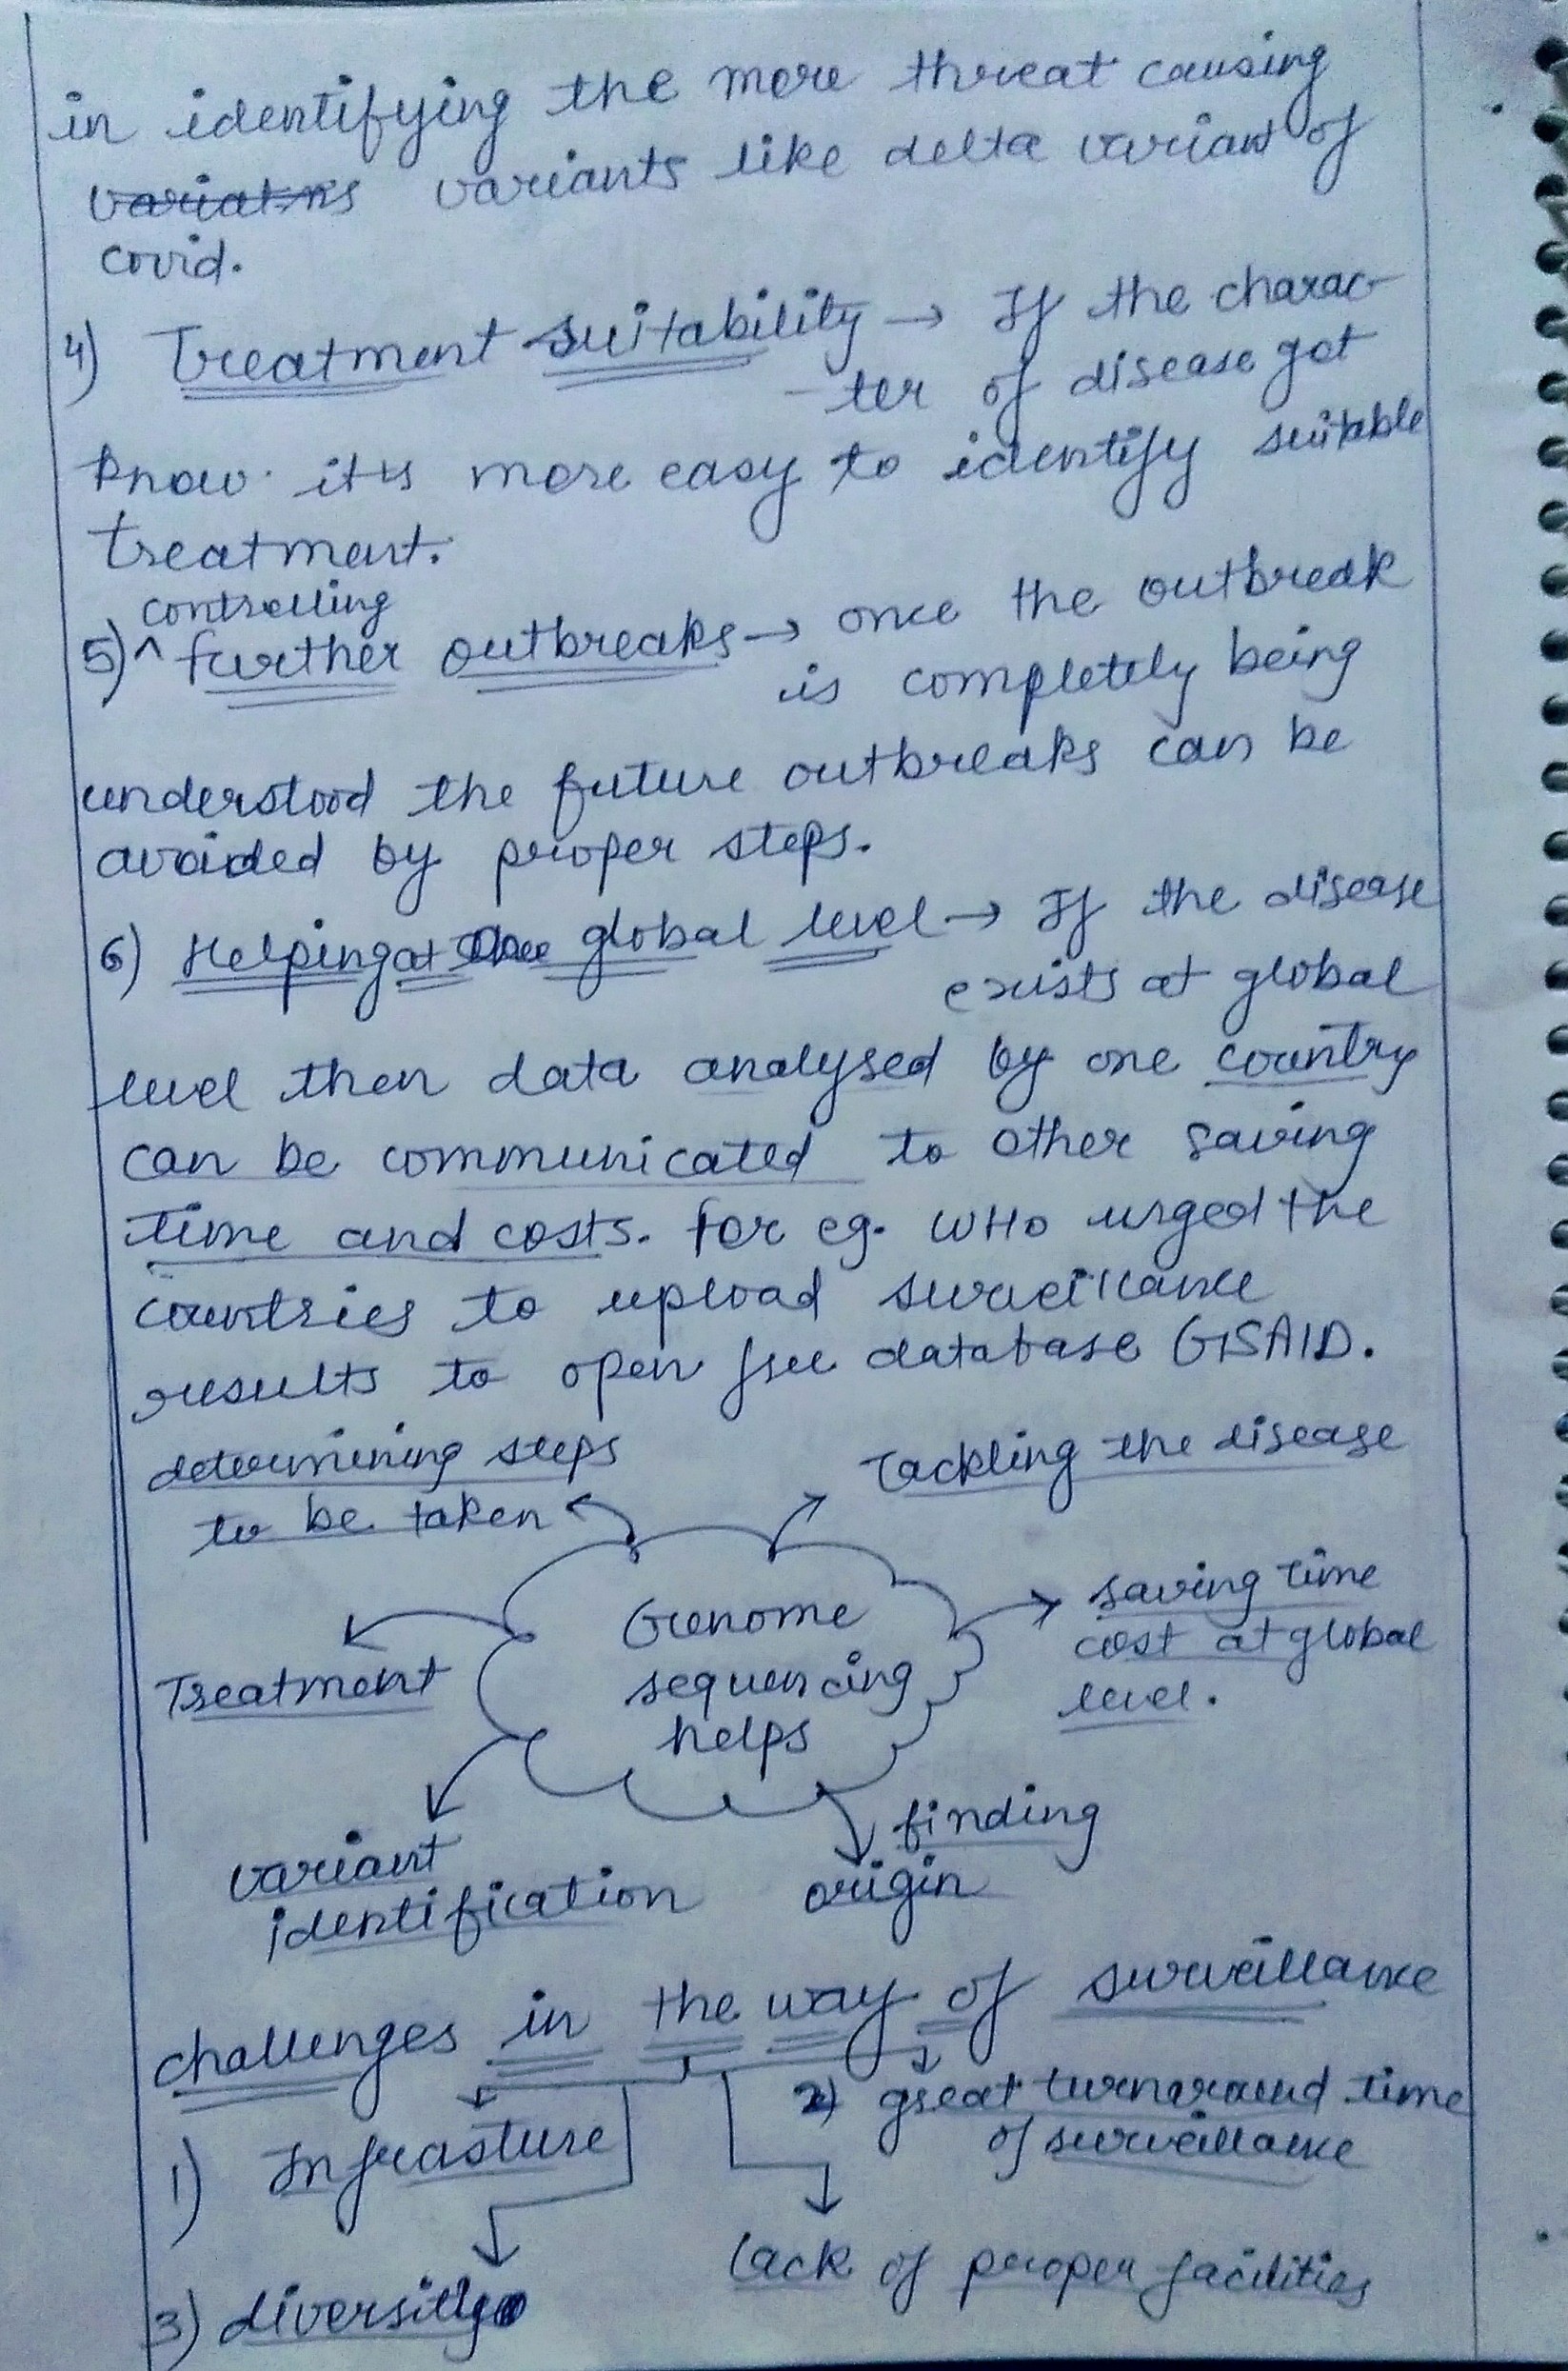 in identifying the more threat causing
variatns variants like delta variant of
covid.
4) Treatment suitability → If the charac-
-ter of disease got
know it is more easy to identify suitable
treatment.
controlling
5) ^ further outbreaks → once the outbreak
is completely being
understood the future outbreaks can be
avoided by proper steps.
6) Helping at the global level → If the disease
exists at global
level then data analysed by one country
can be communicated to other saving
time and costs. for eg. WHO urged the
countries to upload surveillance
results to open free database GISAID.
determining steps
to be taken
Tackling the disease
Genome
sequencing
helps
saving time
cost at global
level.
Treatment
variant
identification
finding
origin
challenges in the way of surveillance
1) Infrasture
2) great turnaround time
of surveillance
3) diversity
lack of proper facilities